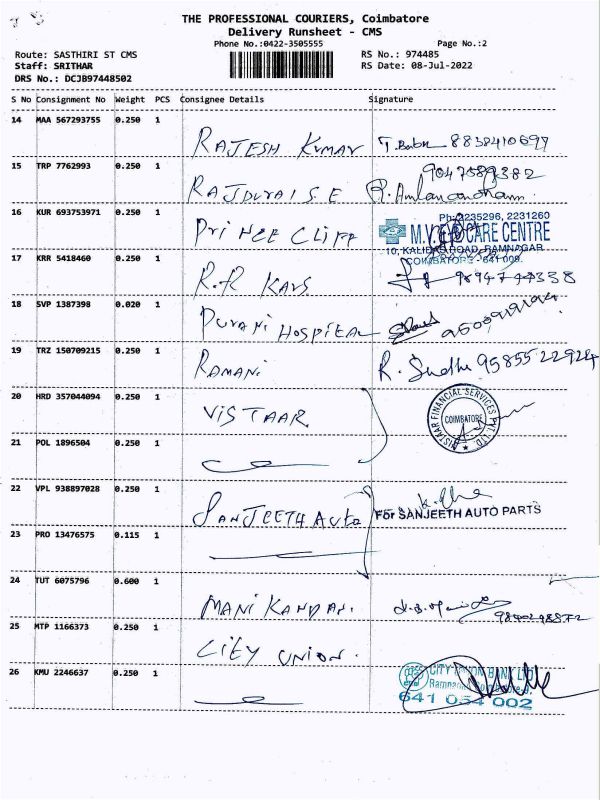 THE PROFESSIONAL COURIERS, Coimbatore
Delivery Runsheet - CMS
Phone No.:0422-3505555 Page No.:2
Route: SASTHIRI ST CMS RS No.: 974485
Staff: SRITHAR RS Date: 08-Jul-2022
DRS No.: DCJB97448502
S No Consignment No Weight PCS Consignee Details Signature
14 MAA 567293755 0.250 1
RAJESH KUMAR T. Babu 8838410697
15 TRP 7762993 0.250 1
RAJDURAI S E 9047589382
16 KUR 693753971 0.250 1
PRINCE CLIFF Ph: 2235296, 2231260
M.V. EYE CARE CENTRE
10, KALIDAS ROAD, RAMNAGAR,
COIMBATORE - 641 009.
17 KRR 5418460 0.250 1
R.R KARS
18 SVP 1387398 0.020 1
DURANI HOSPITAL
19 TRZ 150709215 0.250 1
RAMANI R. Sudha 9585522924
20 HRD 357044094 0.250 1
VISTAAR VISTAAR FINANCIAL SERVICES PVT. LTD. COIMBATORE
21 POL 1896504 0.250 1
22 VPL 938897028 0.250 1
SANJEETH AUTO For SANJEETH AUTO PARTS
23 PRO 13476575 0.115 1
24 TUT 6075796 0.600 1
MANIKANDAN.
25 MTP 1166373 0.250 1
CITY UNION.
26 KMU 2246637 0.250 1
CITY UNION BANK LTD
641 034 002